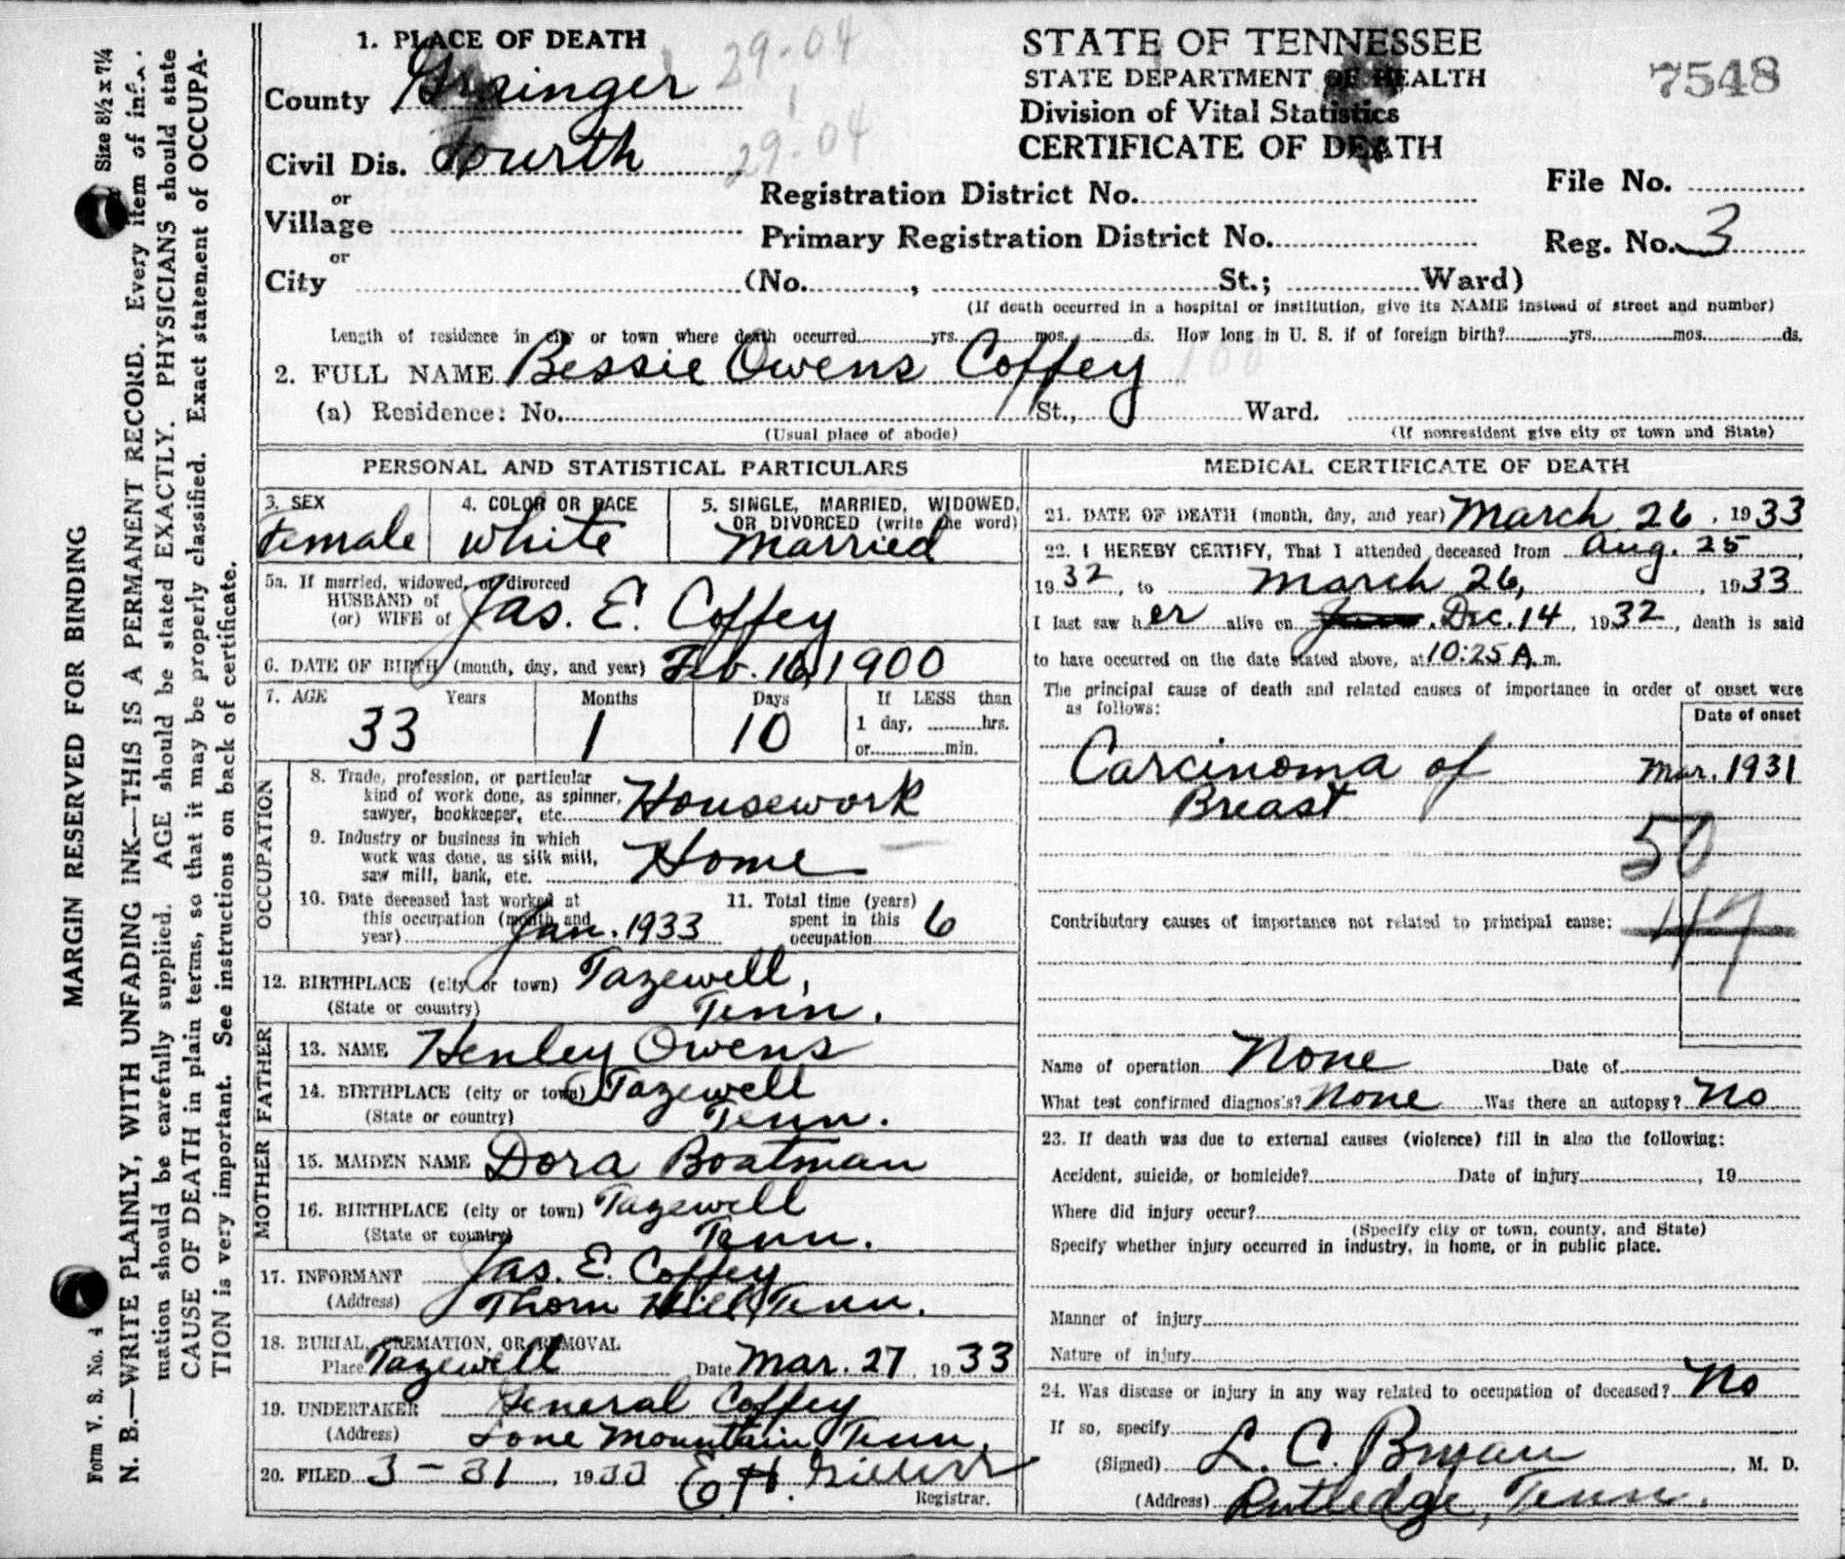 Size 8½ x 7¼
MARGIN RESERVED FOR BINDING
N. B.—WRITE PLAINLY, WITH UNFADING INK—THIS IS A PERMANENT RECORD. Every item of infor-
mation should be carefully supplied. AGE should be stated EXACTLY. PHYSICIANS should state
CAUSE OF DEATH in plain terms, so that it may be properly classified. Exact statement of OCCUPA-
TION is very important. See instructions on back of certificate.
Form V. S. No. 4
1. PLACE OF DEATH
County Grainger 29-04
Civil Dis. Fourth 29-04
or
Village
or
City (No. , St.; Ward)
STATE OF TENNESSEE
STATE DEPARTMENT OF HEALTH
Division of Vital Statistics
CERTIFICATE OF DEATH
7548
Registration District No.
Primary Registration District No.
File No.
Reg. No. 3
(If death occurred in a hospital or institution, give its NAME instead of street and number)
Length of residence in city or town where death occurred yrs. mos. ds. How long in U. S. if of foreign birth? yrs. mos. ds.
2. FULL NAME Bessie Owens Coffey 100
(a) Residence: No. St., Ward.
(Usual place of abode) (If nonresident give city or town and State)
PERSONAL AND STATISTICAL PARTICULARS
3. SEX 4. COLOR OR RACE 5. SINGLE, MARRIED, WIDOWED,
OR DIVORCED (write the word)
Female White Married
5a. If married, widowed, or divorced
HUSBAND of
(or) WIFE of Jas. E. Coffey
6. DATE OF BIRTH (month, day, and year) Feb. 16, 1900
7. AGE Years Months Days If LESS than
33 1 10 1 day, hrs.
or min.
OCCUPATION
8. Trade, profession, or particular
kind of work done, as spinner,
sawyer, bookkeeper, etc. Housework
9. Industry or business in which
work was done, as silk mill,
saw mill, bank, etc. Home
10. Date deceased last worked at
this occupation (month and
year) Jan. 1933
11. Total time (years)
spent in this
occupation 6
12. BIRTHPLACE (city or town) Tazewell,
(State or country) Tenn.
FATHER
13. NAME Henley Owens
14. BIRTHPLACE (city or town) Tazewell
(State or country) Tenn.
MOTHER
15. MAIDEN NAME Dora Boatman
16. BIRTHPLACE (city or town) Tazewell
(State or country) Tenn.
17. INFORMANT Jas. E. Coffey
(Address) Thorn Hill, Tenn.
18. BURIAL, CREMATION, OR REMOVAL
Place Tazewell Date Mar. 27, 1933
19. UNDERTAKER General Coffey
(Address) Lone Mountain Tenn.
20. FILED 3-31, 1933 E. H.
Registrar.
MEDICAL CERTIFICATE OF DEATH
21. DATE OF DEATH (month, day, and year) March 26, 1933
22. I HEREBY CERTIFY, That I attended deceased from Aug. 25,
1932, to March 26, 1933
I last saw her alive on Dec. 14, 1932, death is said
to have occurred on the date stated above, at 10:25 A. m.
The principal cause of death and related causes of importance in order of onset were
as follows:
Date of onset
Carcinoma of Mar. 1931
Breast
50
Contributory causes of importance not related to principal cause: 47
Name of operation None Date of
What test confirmed diagnosis? None Was there an autopsy? No
23. If death was due to external causes (violence) fill in also the following:
Accident, suicide, or homicide? Date of injury , 19
Where did injury occur?
(Specify city or town, county, and State)
Specify whether injury occurred in industry, in home, or in public place.
Manner of injury
Nature of injury
24. Was disease or injury in any way related to occupation of deceased? No
If so, specify
(Signed) L. C. Bryan, M. D.
(Address) Rutledge, Tenn.